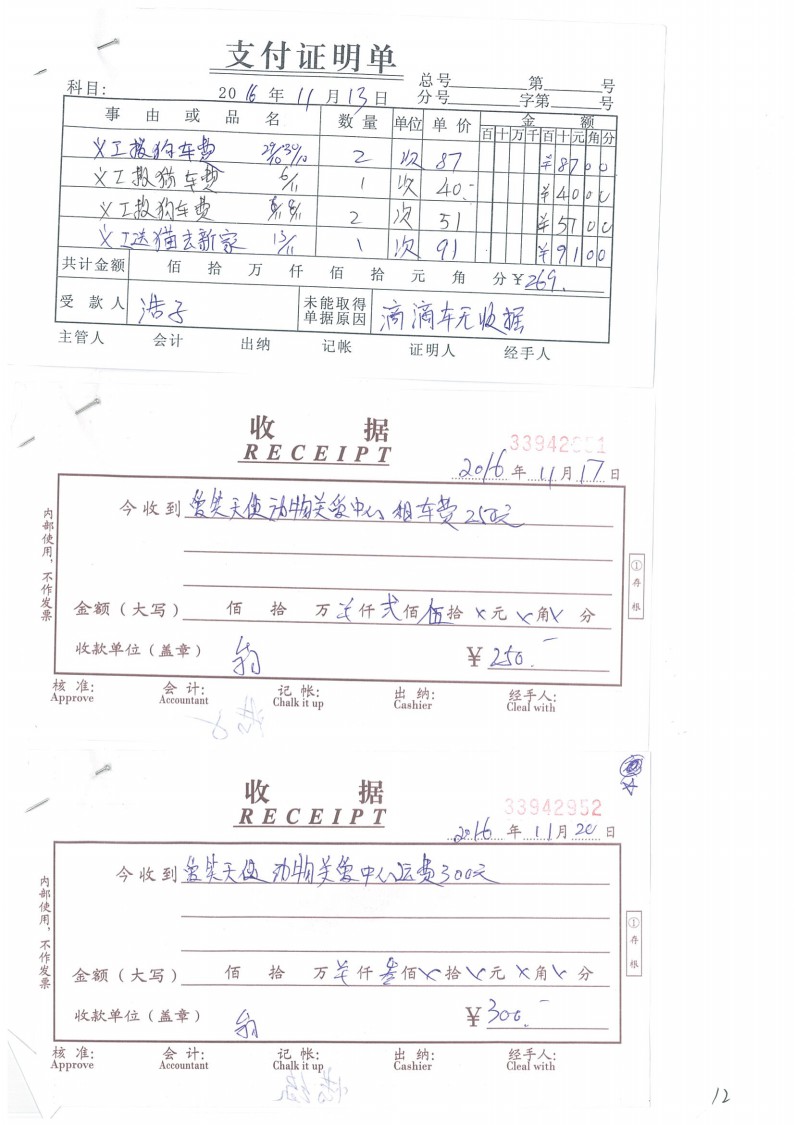 支付证明单
科目: 2016年11月13日 总号 第 号
分号 字第 号
事由或品名 数量 单位 单价 金额
百十万千百十元角分
义工搬狗车费 29/10 30/10 2 次 87 ¥8700
义工搬猫车费 6/11 1 次 40.- ¥4000
义工搬狗车费 2 次 51 ¥5100
义工送猫去新家 13/11 1 次 91 ¥9100
共计金额 佰 拾 万 仟 佰 拾 元 角 分 ¥269.
受款人 浩子 未能取得单据原因 滴滴车无收据
主管人 会计 出纳 记帐 证明人 经手人
收据
RECEIPT
33942
2016年11月17日
今收到 爱笑天使动物关爱中心 租车费250元
金额（大写） 佰 拾 万 仟 弍 佰 伍 拾 × 元 × 角 × 分
收款单位（盖章） ¥250.-
核准: 会计: 记帐: 出纳: 经手人:
Approve Accountant Chalk it up Cashier Cleal with
内部使用，不作发票
①存根
收据
RECEIPT
33942952
2016年11月20日
今收到 爱笑天使动物关爱中心运费300元
金额（大写） 佰 拾 万 仟 叁 佰 × 拾 × 元 × 角 × 分
收款单位（盖章） ¥300.-
核准: 会计: 记帐: 出纳: 经手人:
Approve Accountant Chalk it up Cashier Cleal with
内部使用，不作发票
①存根
12